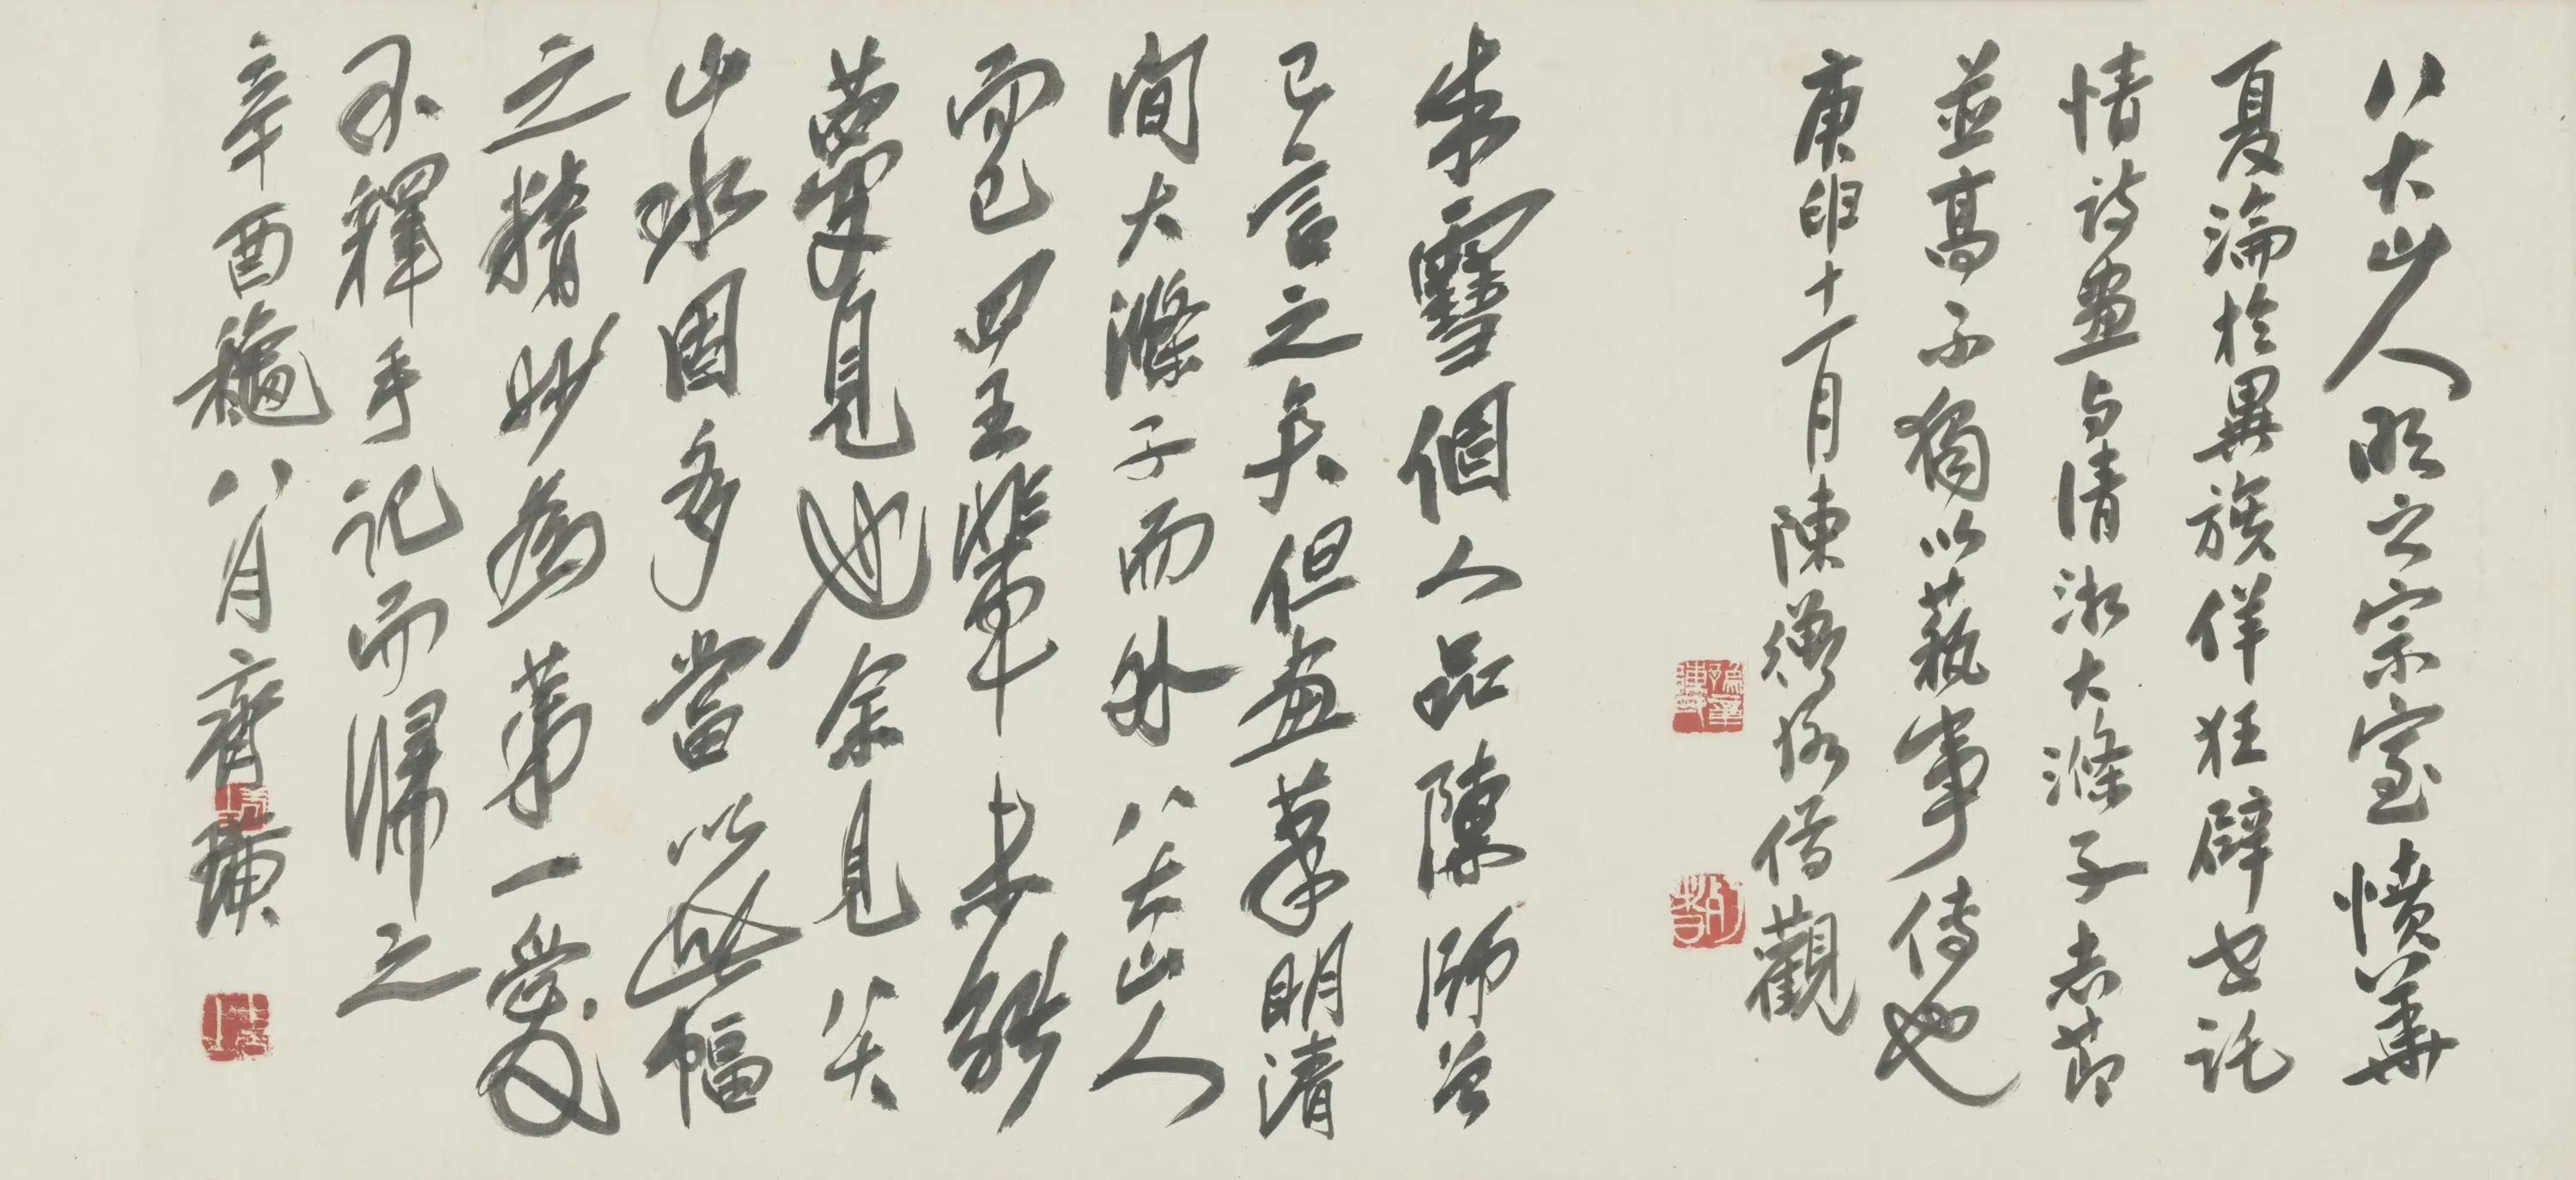 八大山人明之宗室憤華
夏淪於異族佯狂辟世託
情詩畫与清湘大滌子志節
並高不獨以藝事傳也
庚申十一月陳衡恪借觀
朱雪個人品陳師曾
已言之矣但畫筆明清
間大滌子而外八大山人
而已四王輩未能
夢見也余見八大
山水固多當以此幅
之精妙為第一愛
不釋手記而歸之
辛酉秋八月齊璜